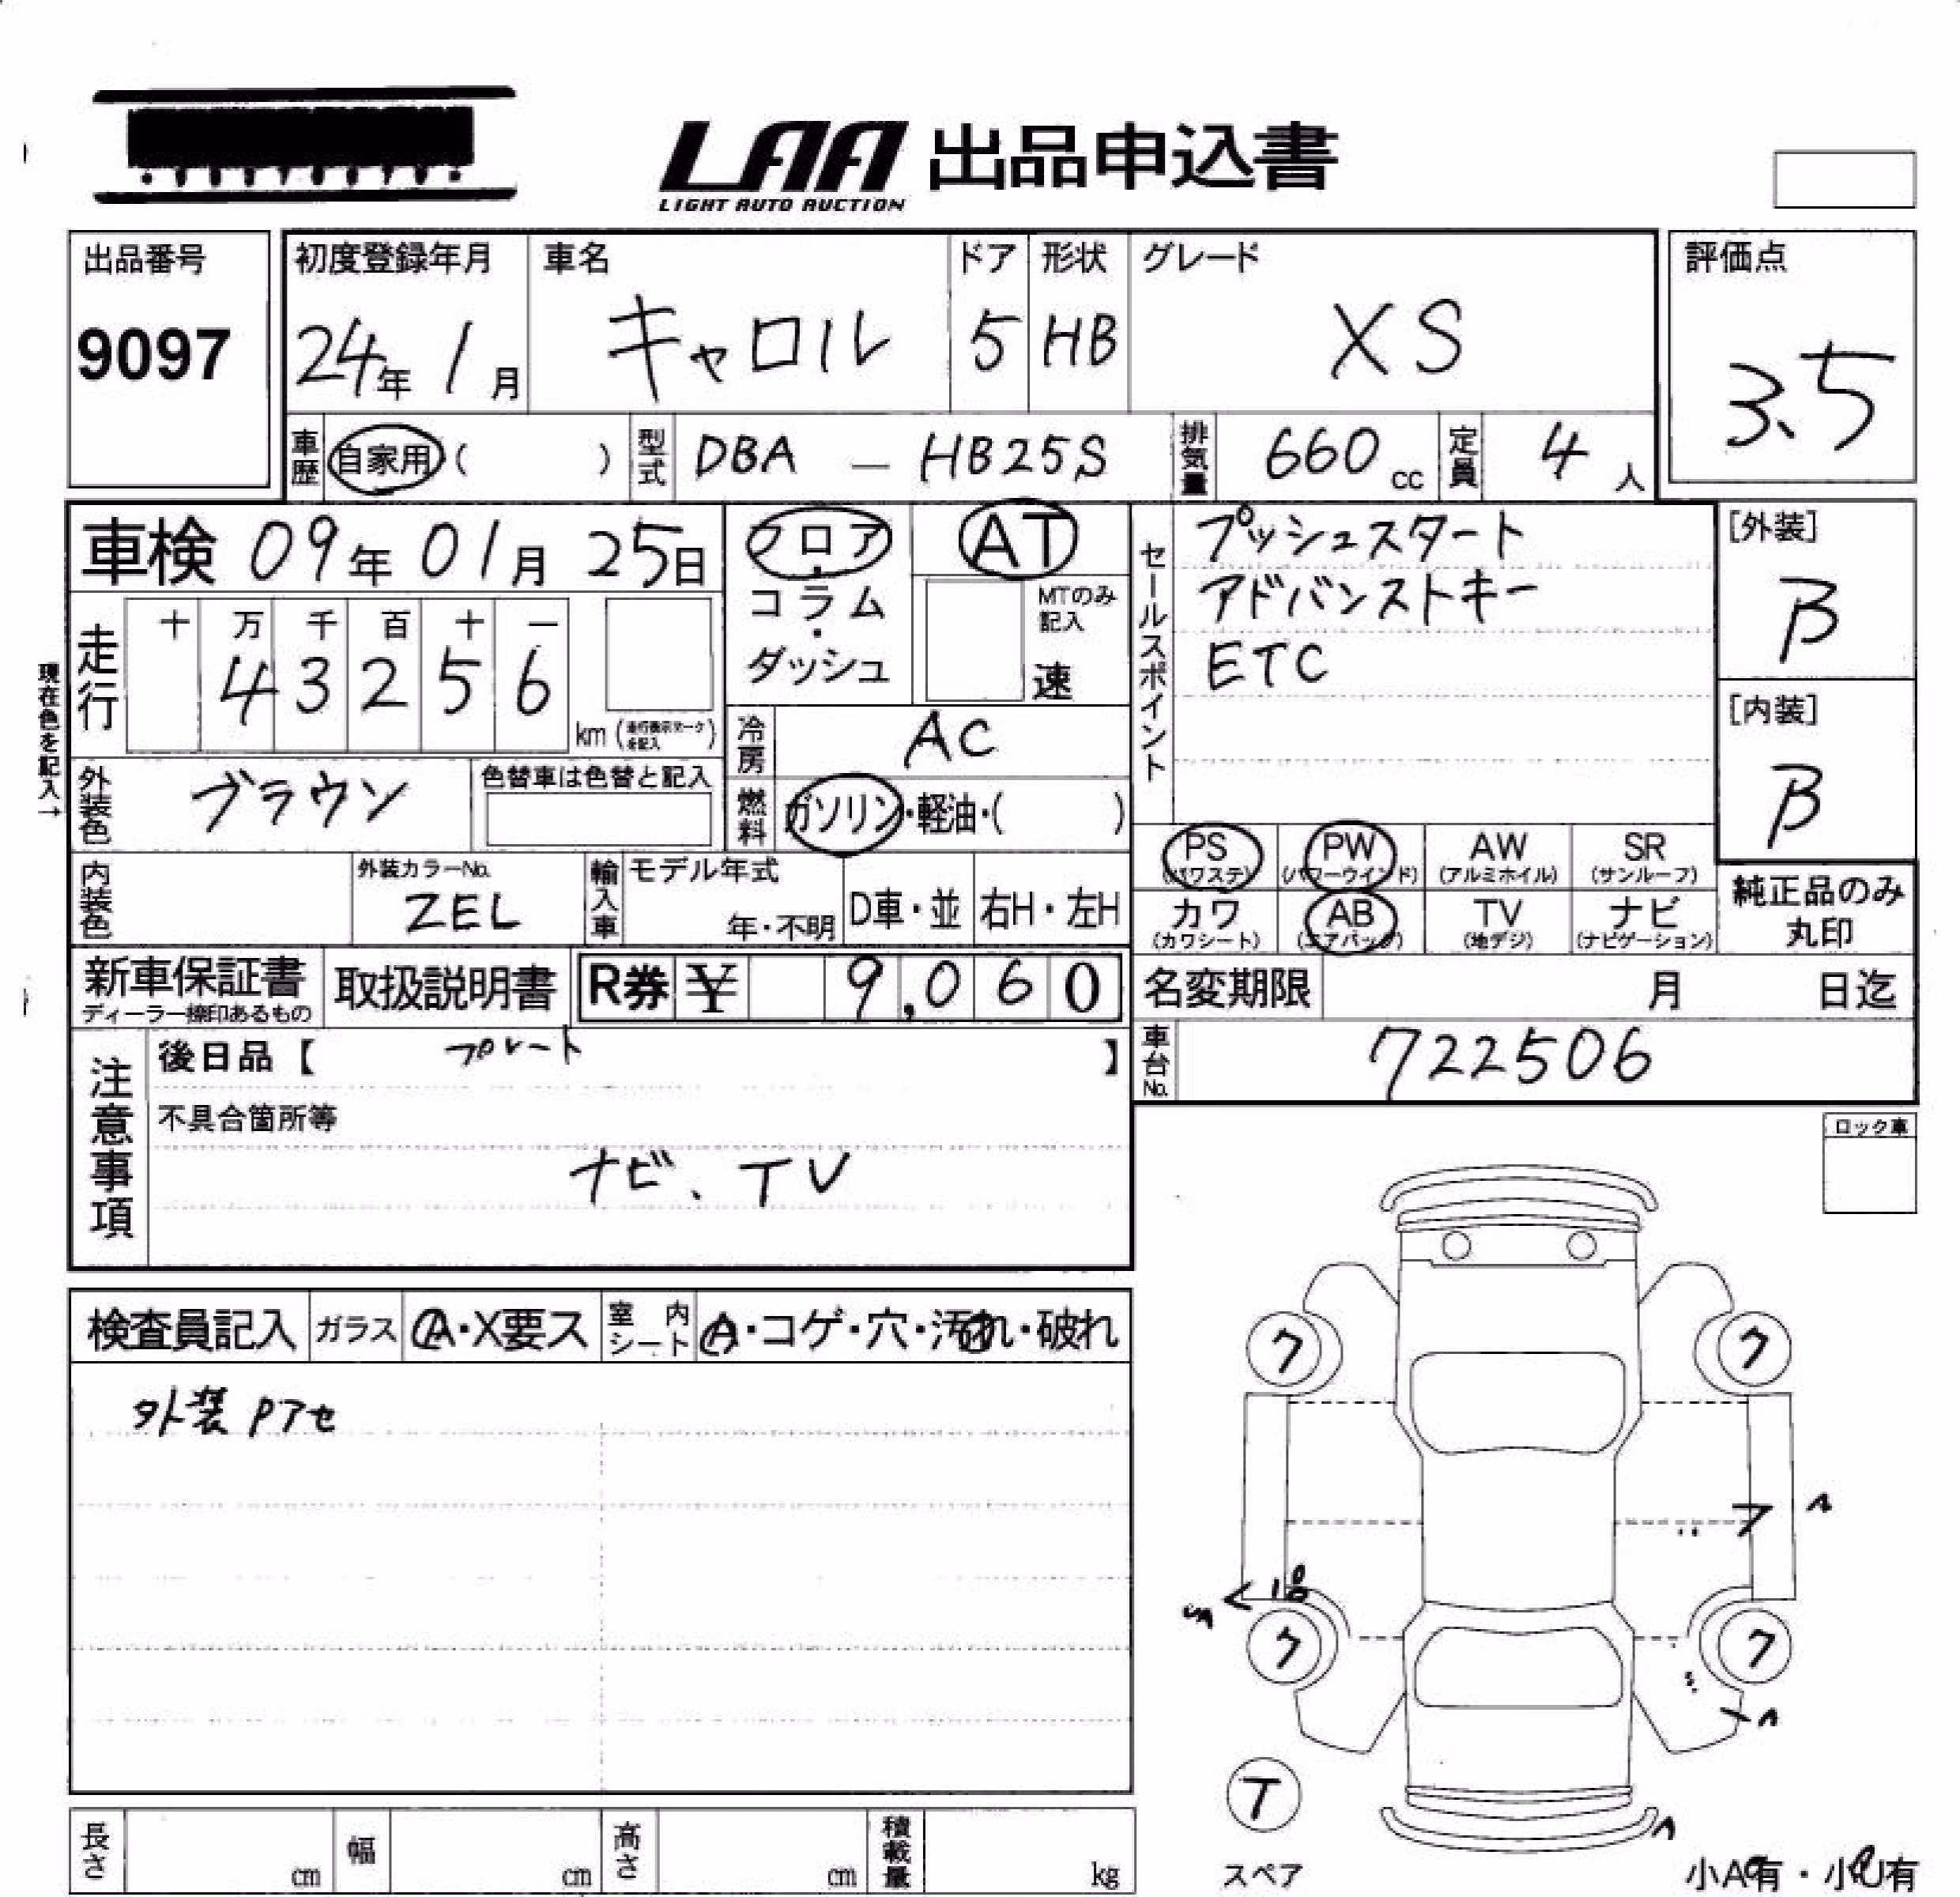 LAA 出品申込書
LIGHT AUTO AUCTION
出品番号
9097
初度登録年月
24年 1月
車名
キャロル
ドア
5
形状
HB
グレード
XS
評価点
3.5
車歴 自家用 ( )
型式 DBA - HB25S
排気量 660 cc
定員 4 人
車検 09年 01月 25日
フロア・コラム・ダッシュ
AT
MTのみ記入
速
セールスポイント
プッシュスタート
アドバンストキー
ETC
[外装]
B
[内装]
B
現在色を記入→
走行
十 万 千 百 十 一
4 3 2 5 6
km (走行表示マークを記入)
冷房 AC
外装色 ブラウン
色替車は色替と記入
燃料 ガソリン・軽油・( )
PS (パワステ)
PW (パワーウインド)
AW (アルミホイル)
SR (サンルーフ)
カワ (カワシート)
AB (エアバック)
TV (地デジ)
ナビ (ナビゲーション)
純正品のみ丸印
内装色
外装カラーNo.
ZEL
輸入車
モデル年式
年・不明
D車・並
右H・左H
新車保証書
ディーラー捺印あるもの
取扱説明書
R券 ¥ 9,060
名変期限 月 日迄
車台No. 722506
注意事項
後日品【 プレート 】
不具合箇所等
ナビ、TV
ロック車
検査員記入
ガラス A・X要ス
室内シート A・コゲ・穴・汚れ・破れ
外装 Pアセ
ク ク
ク ク
T
スペア
長さ cm
幅 cm
高さ cm
積載量 kg
小A有・小U有